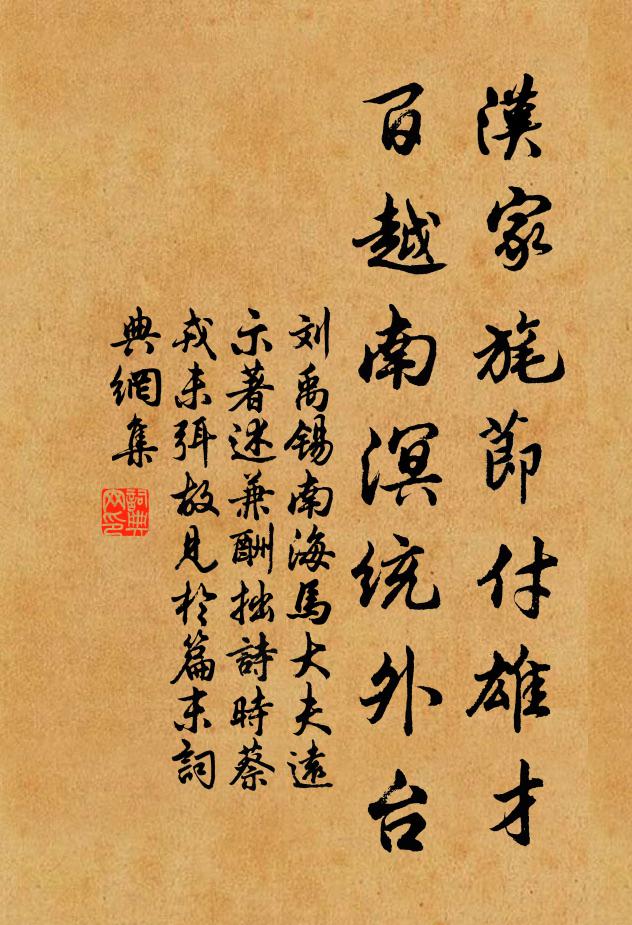 漢家旄節付雄才
百越南溟統外台
刘禹锡南海馬大夫遠
示著述兼酬拙詩時蔡
戎未弭故見於篇末詞
典網集
詞典
网印